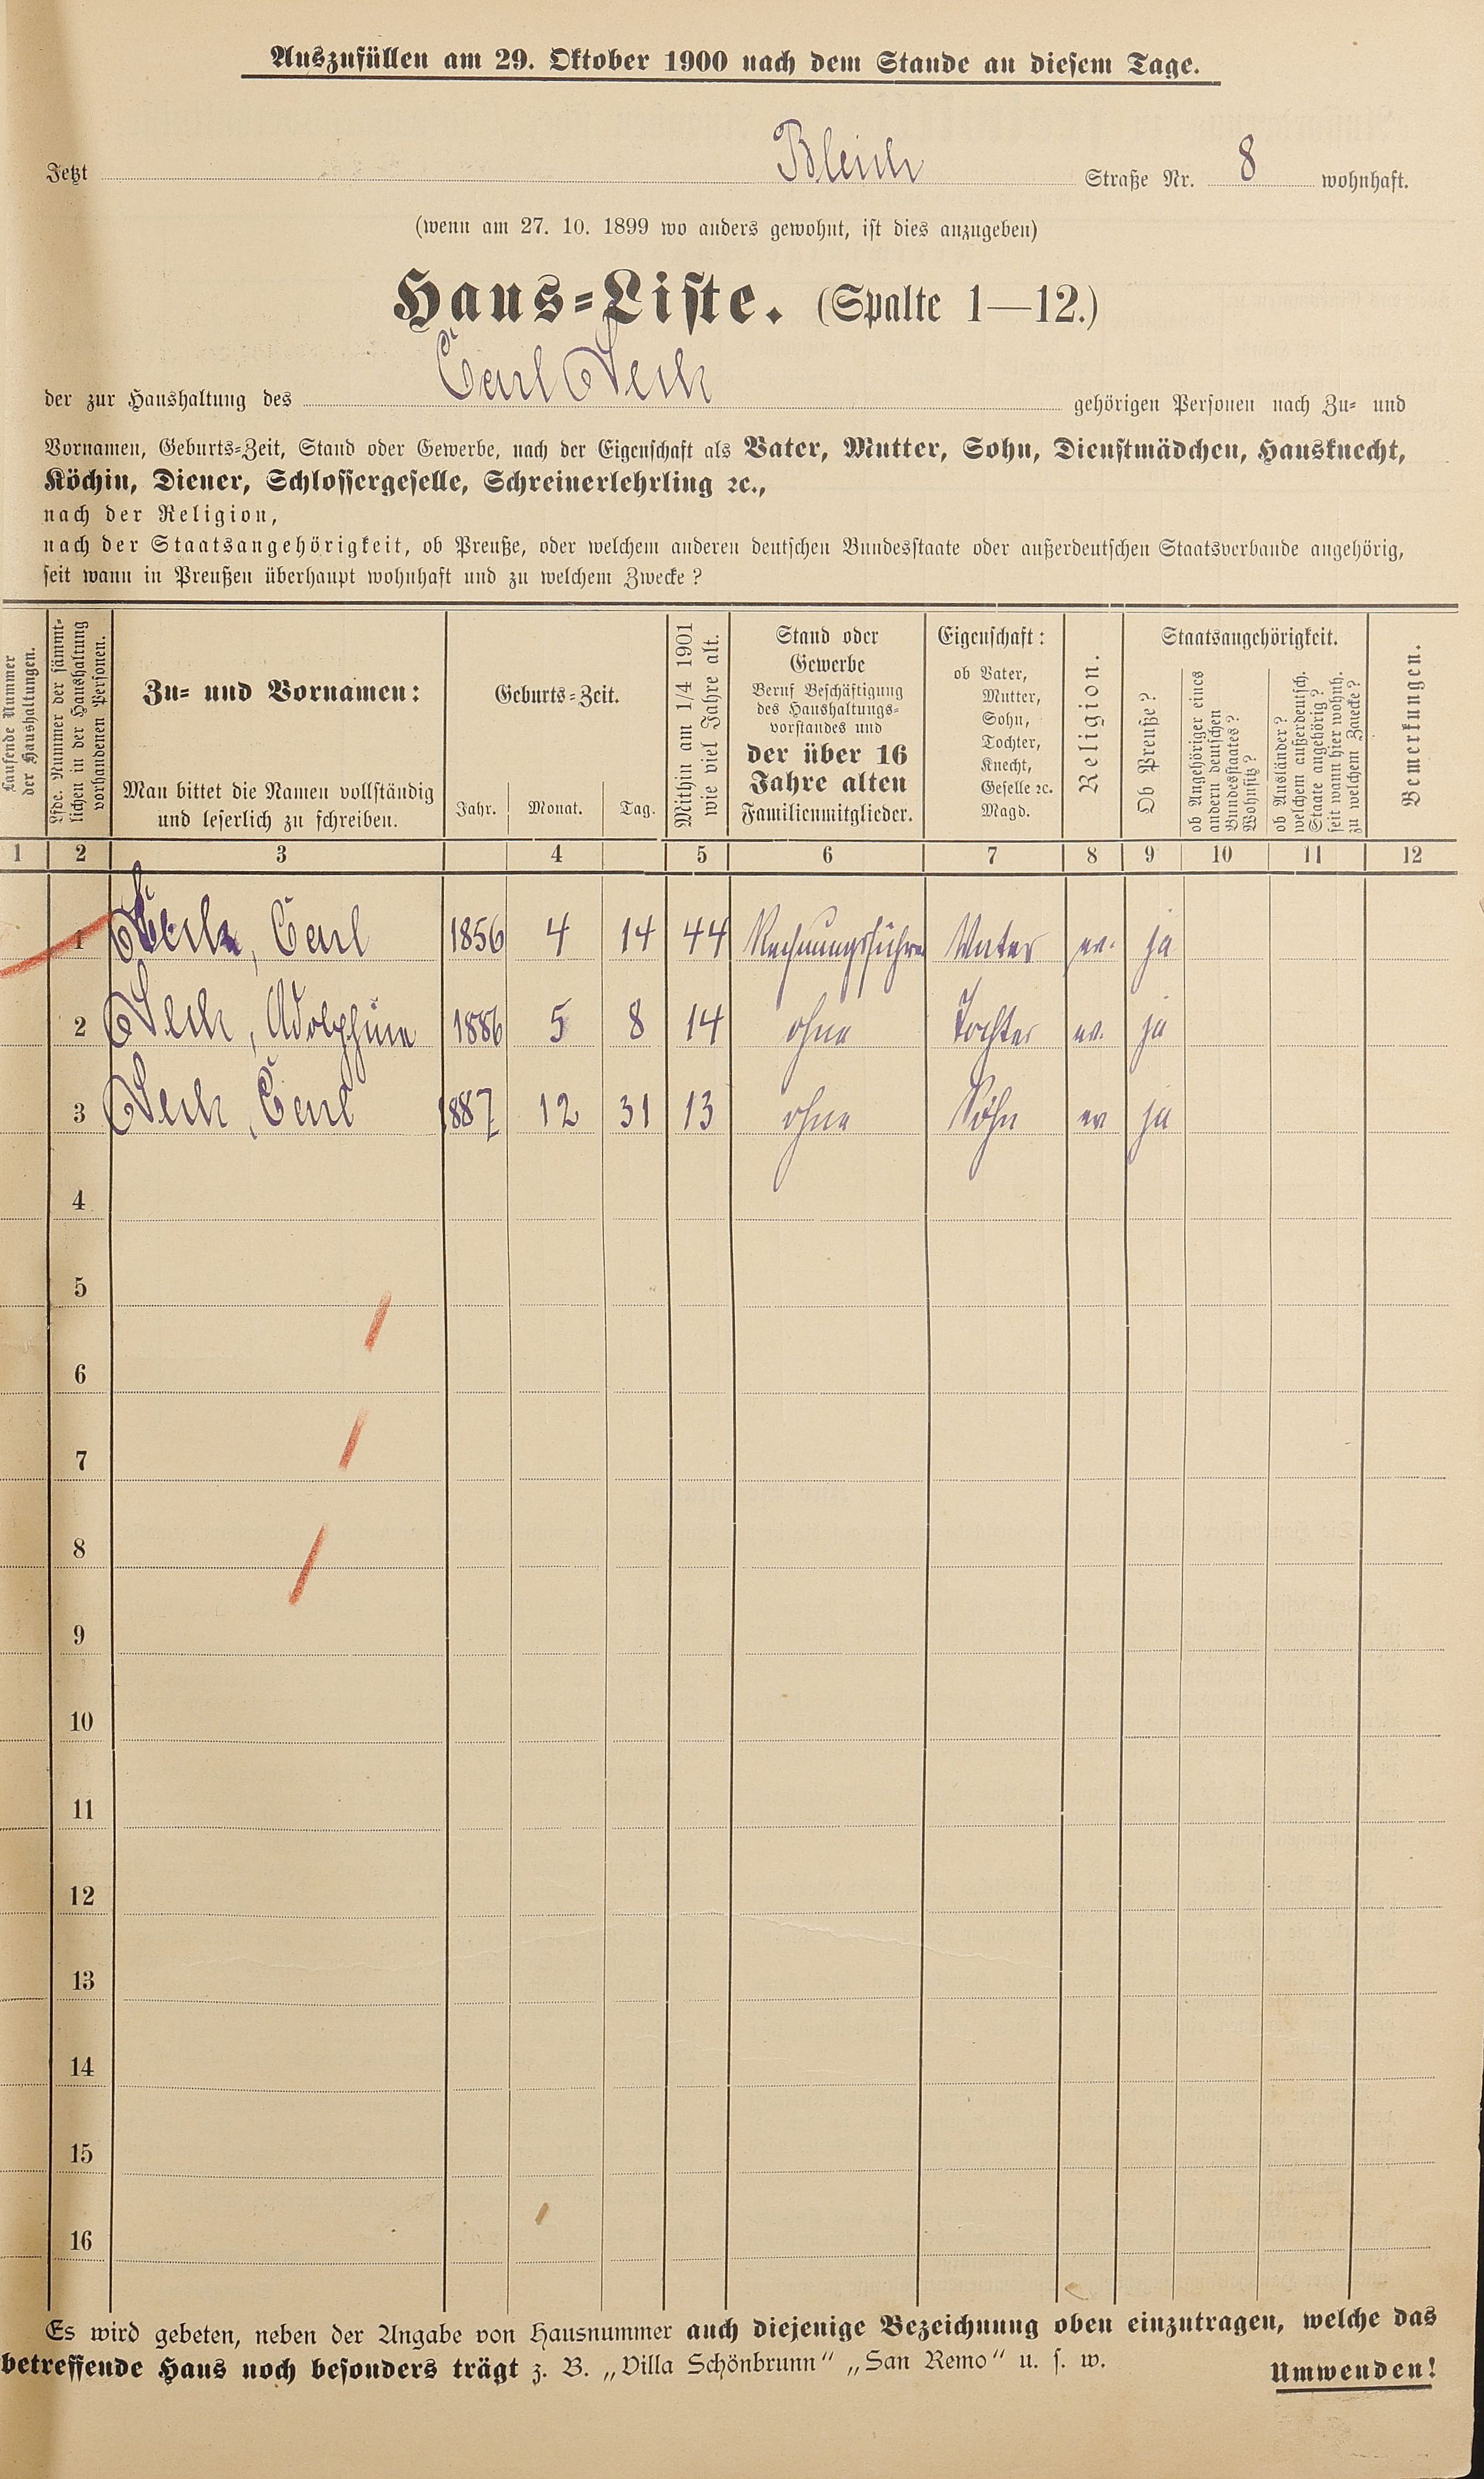 Auszufüllen am 29. Oktober 1900 nach dem Stande an diesem Tage.
Jetzt Bleich Straße Nr. 8 wohnhaft.
(wenn am 27. 10. 1899 wo anders gewohnt, ist dies anzugeben)
Haus-Liste. (Spalte 1—12.)
der zur Haushaltung des Carl gehörigen Personen nach Zu- und
Vornamen, Geburts-Zeit, Stand oder Gewerbe, nach der Eigenschaft als Vater, Mutter, Sohn, Dienstmädchen, Hausknecht,
Köchin, Diener, Schlossergeselle, Schreinerlehrling ꝛc.,
nach der Religion,
nach der Staatsangehörigkeit, ob Preuße, oder welchem anderen deutschen Bundesstaate oder außerdeutschen Staatsverbande angehörig,
seit wann in Preußen überhaupt wohnhaft und zu welchem Zwecke?
Laufende Nummer
der Haushaltungen.
Lfde. Nummer der sämmt-
lichen in der Haushaltung
vorhandenen Personen.
Zu- und Vornamen:
Man bittet die Namen vollständig
und leserlich zu schreiben.
Geburts-Zeit.
Jahr. Monat. Tag.
Mithin am 1/4 1901
wie viel Jahre alt.
Stand oder
Gewerbe
Beruf Beschäftigung
des Haushaltungs-
vorstandes und
der über 16
Jahre alten
Familienmitglieder.
Eigenschaft:
ob Vater,
Mutter,
Sohn,
Tochter,
Knecht,
Geselle ꝛc.
Magd.
Religion.
Staatsangehörigkeit.
Ob Preuße?
ob Angehöriger eines
andern deutschen
Bundesstaates?
Wohnsitz?
ob Ausländer?
welchem außerdeutsch.
Staate angehörig?
seit wann hier wohnh.
zu welchem Zwecke?
Bemerkungen.
1 2 3 4 5 6 7 8 9 10 11 12
1 Carl 1856 4 14 44 Rechnungsführer Vater ev. ja
2 Adolphine 1886 5 8 14 ohne Tochter ev. ja
3 Carl 1887 12 31 13 ohne Sohn ev ja
4
5
6
7
8
9
10
11
12
13
14
15
16
Es wird gebeten, neben der Angabe von Hausnummer auch diejenige Bezeichnung oben einzutragen, welche das
betreffende Haus noch besonders trägt z. B. „Villa Schönbrunn“ „San Remo“ u. s. w.
Umwenden!